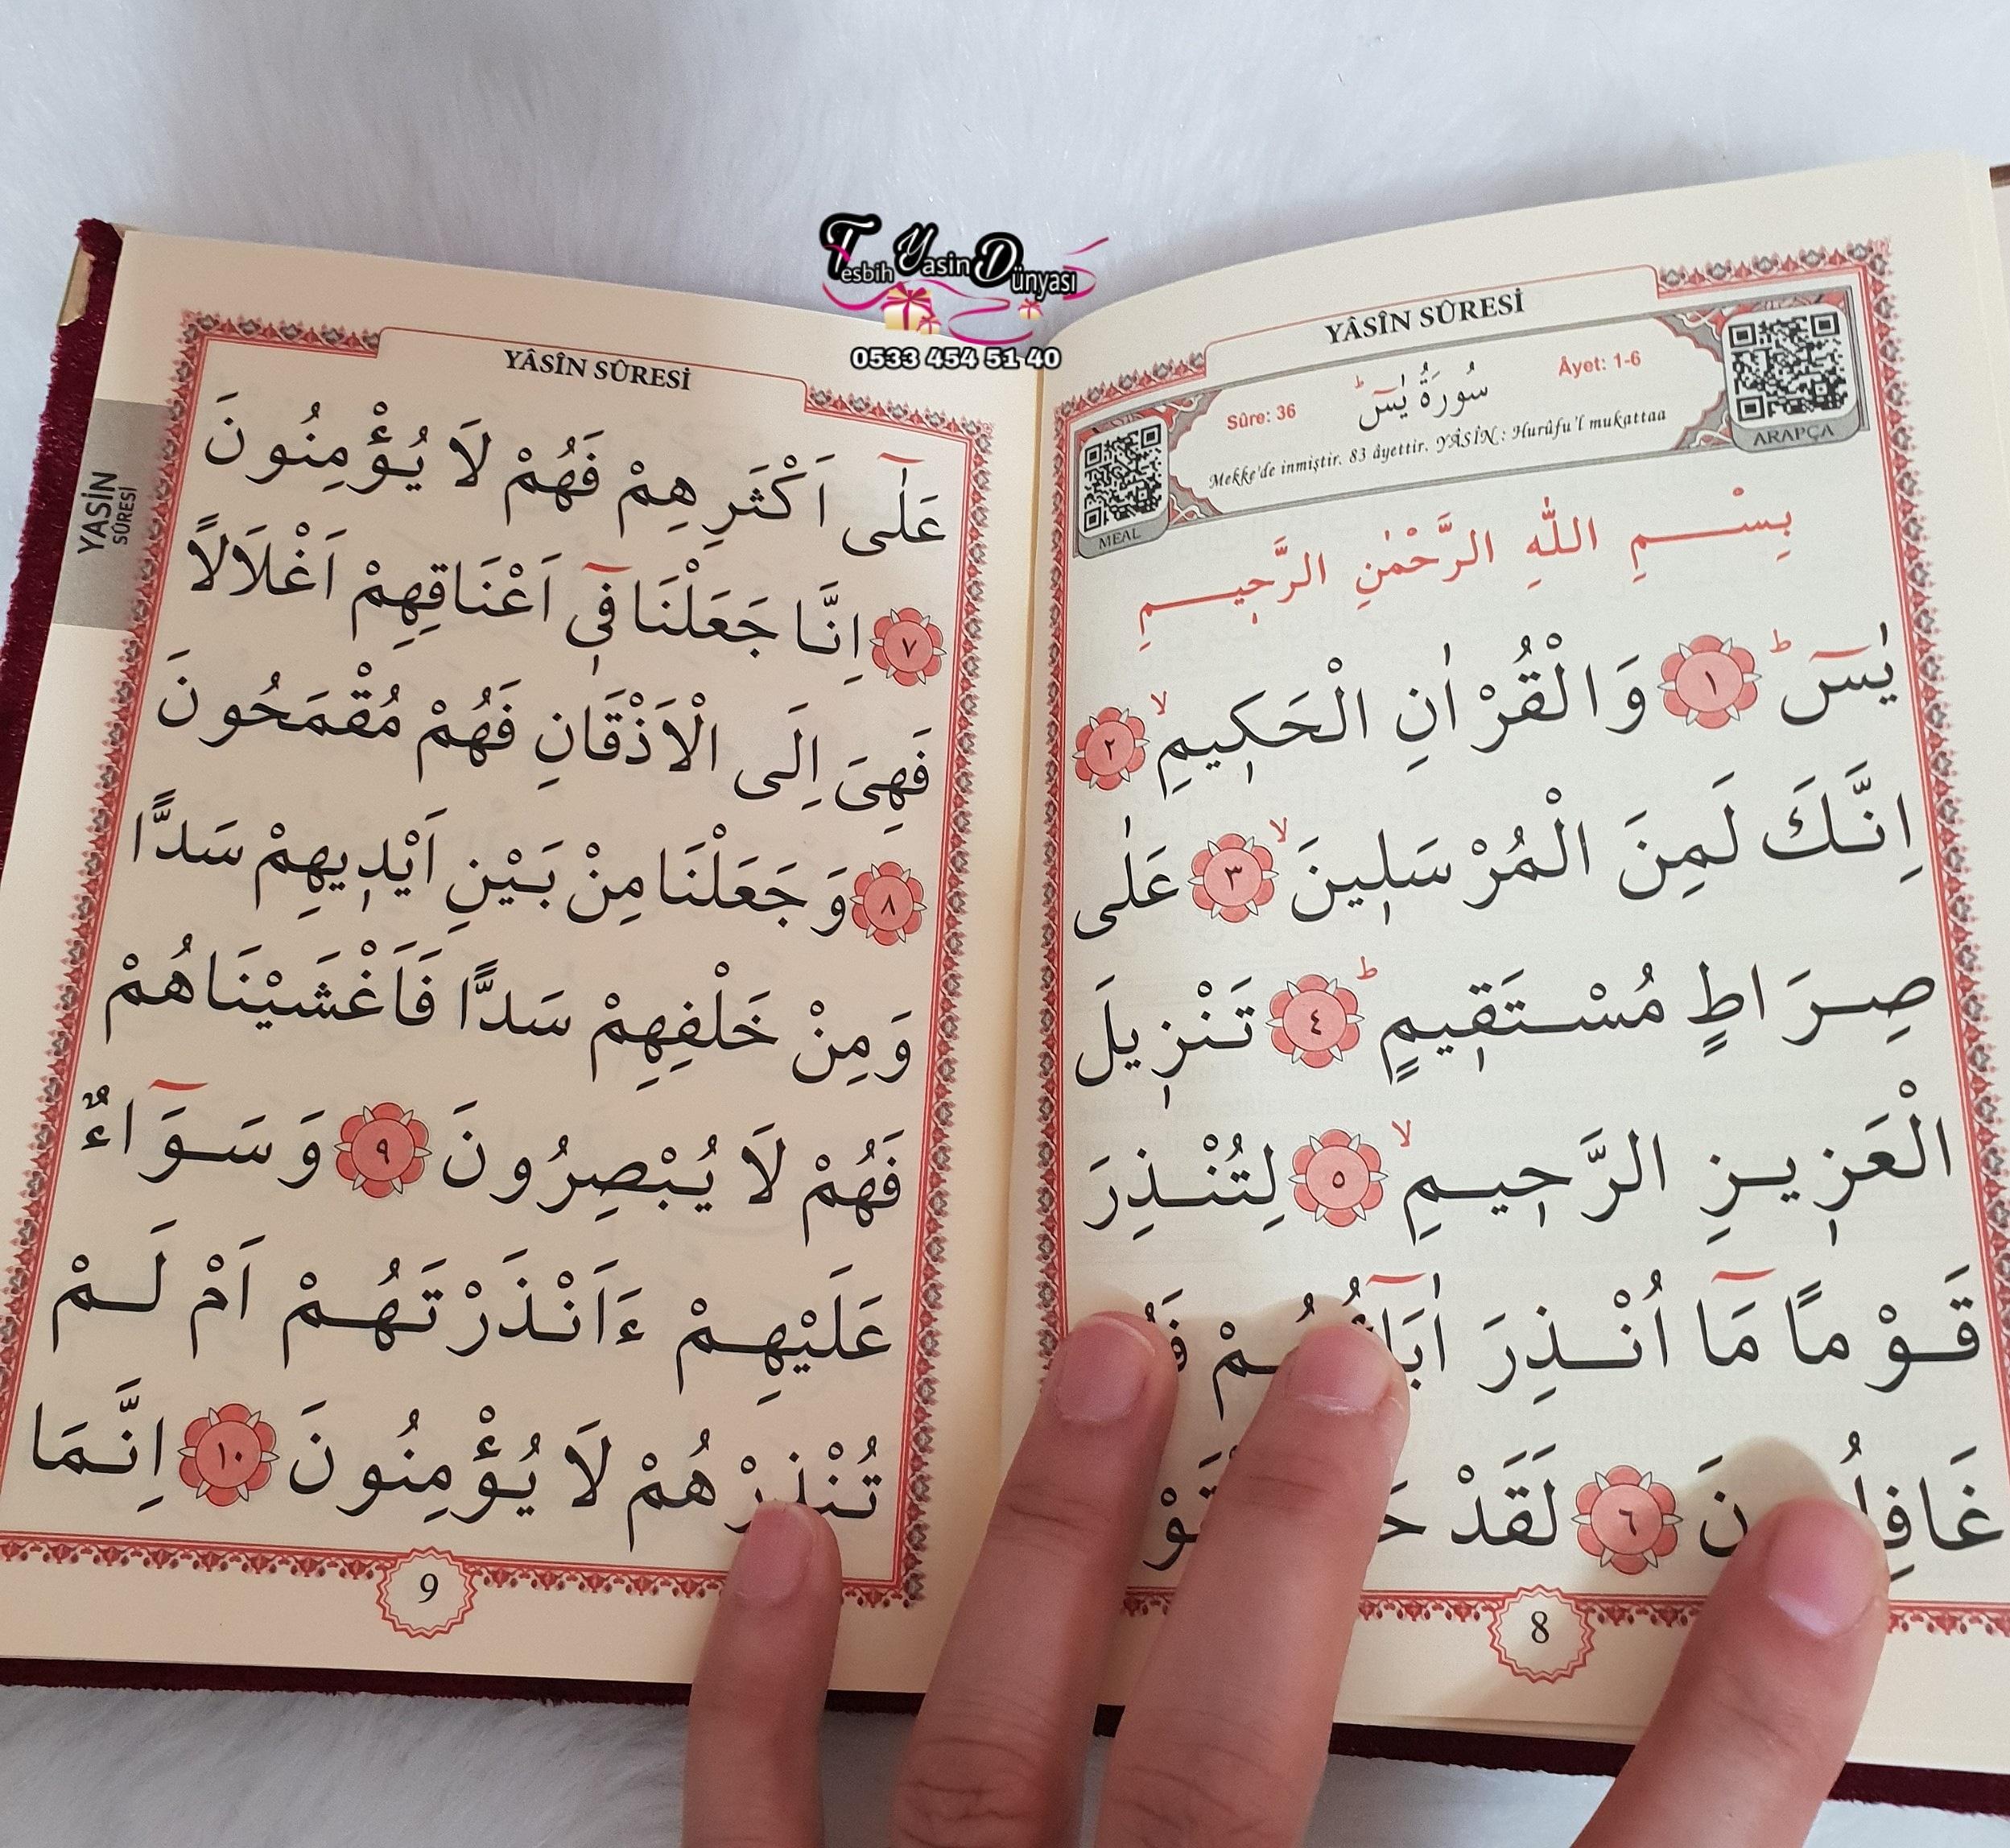 Tesbih Yasin Dünyası
0533 454 51 40
YÂSÎN SÛRESİ
Sûre: 36
سُورَةُ يٰسٓ ط
Âyet: 1-6
Mekke'de inmiştir. 83 âyettir. YÂSÎN : Hurûfu'l mukattaa
MEAL
ARAPÇA
بِسْمِ اللّٰهِ الرَّحْمٰنِ الرَّح۪يمِ
يٰسٓ ط ١ وَالْقُرْاٰنِ الْحَك۪يمِ لا ٢
اِنَّكَ لَمِنَ الْمُرْسَل۪ينَ لا ٣ عَلٰى
صِرَاطٍ مُسْتَق۪يمٍ ط ٤ تَنْز۪يلَ
الْعَز۪يزِ الرَّح۪يمِ لا ٥ لِتُنْذِرَ
قَوْمًا مَٓا اُنْذِرَ
٦ لَقَدْ
8
YÂSÎN SÛRESİ
YASİN SÛRESİ
عَلٰٓى اَكْثَرِهِمْ فَهُمْ لَا يُؤْمِنُونَ
٧ اِنَّا جَعَلْنَا ف۪ٓي اَعْنَاقِهِمْ اَغْلَالًا
فَهِيَ اِلَى الْاَذْقَانِ فَهُمْ مُقْمَحُونَ
٨ وَجَعَلْنَا مِنْ بَيْنِ اَيْد۪يهِمْ سَدًّا
وَمِنْ خَلْفِهِمْ سَدًّا فَاَغْشَيْنَاهُمْ
فَهُمْ لَا يُبْصِرُونَ ٩ وَسَوَٓاءٌ
عَلَيْهِمْ ءَاَنْذَرْتَهُمْ اَمْ لَمْ
تُنْذِرْهُمْ لَا يُؤْمِنُونَ ١٠ اِنَّمَا
9